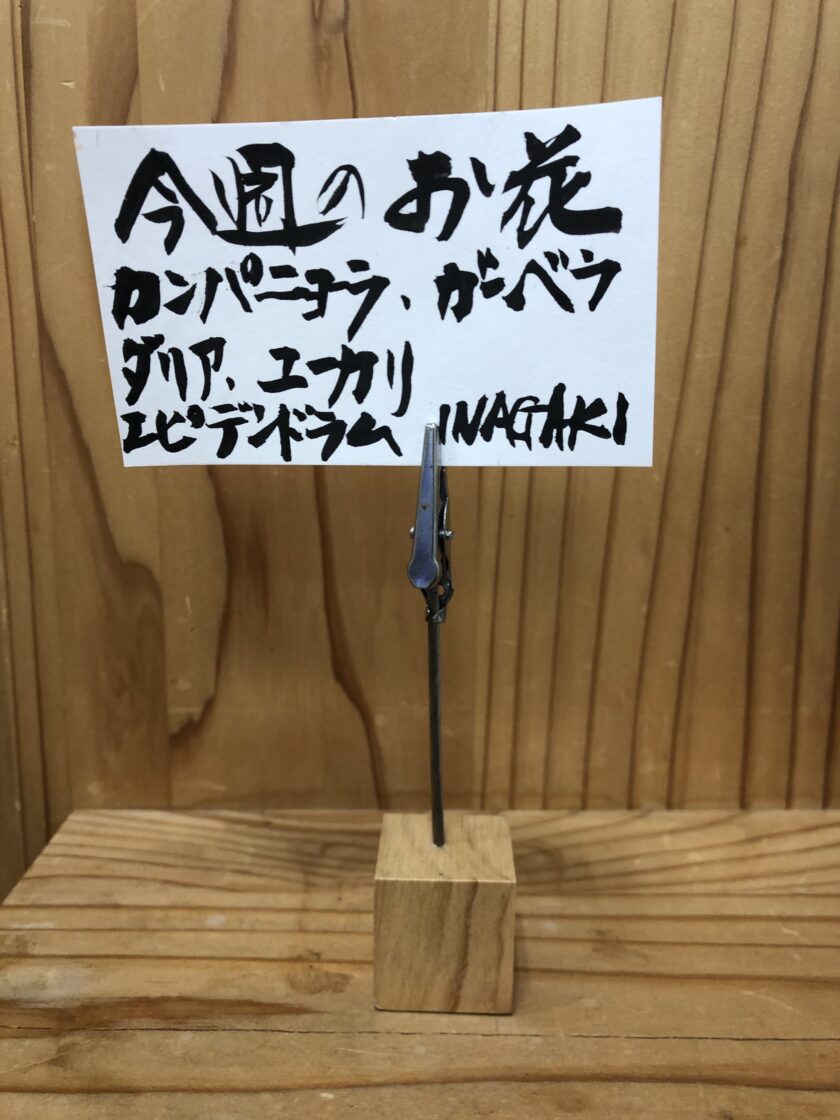 今週のお花
カンパニョラ、ガーベラ
ダリア、ユーカリ
エピデンドラム INAGAKI